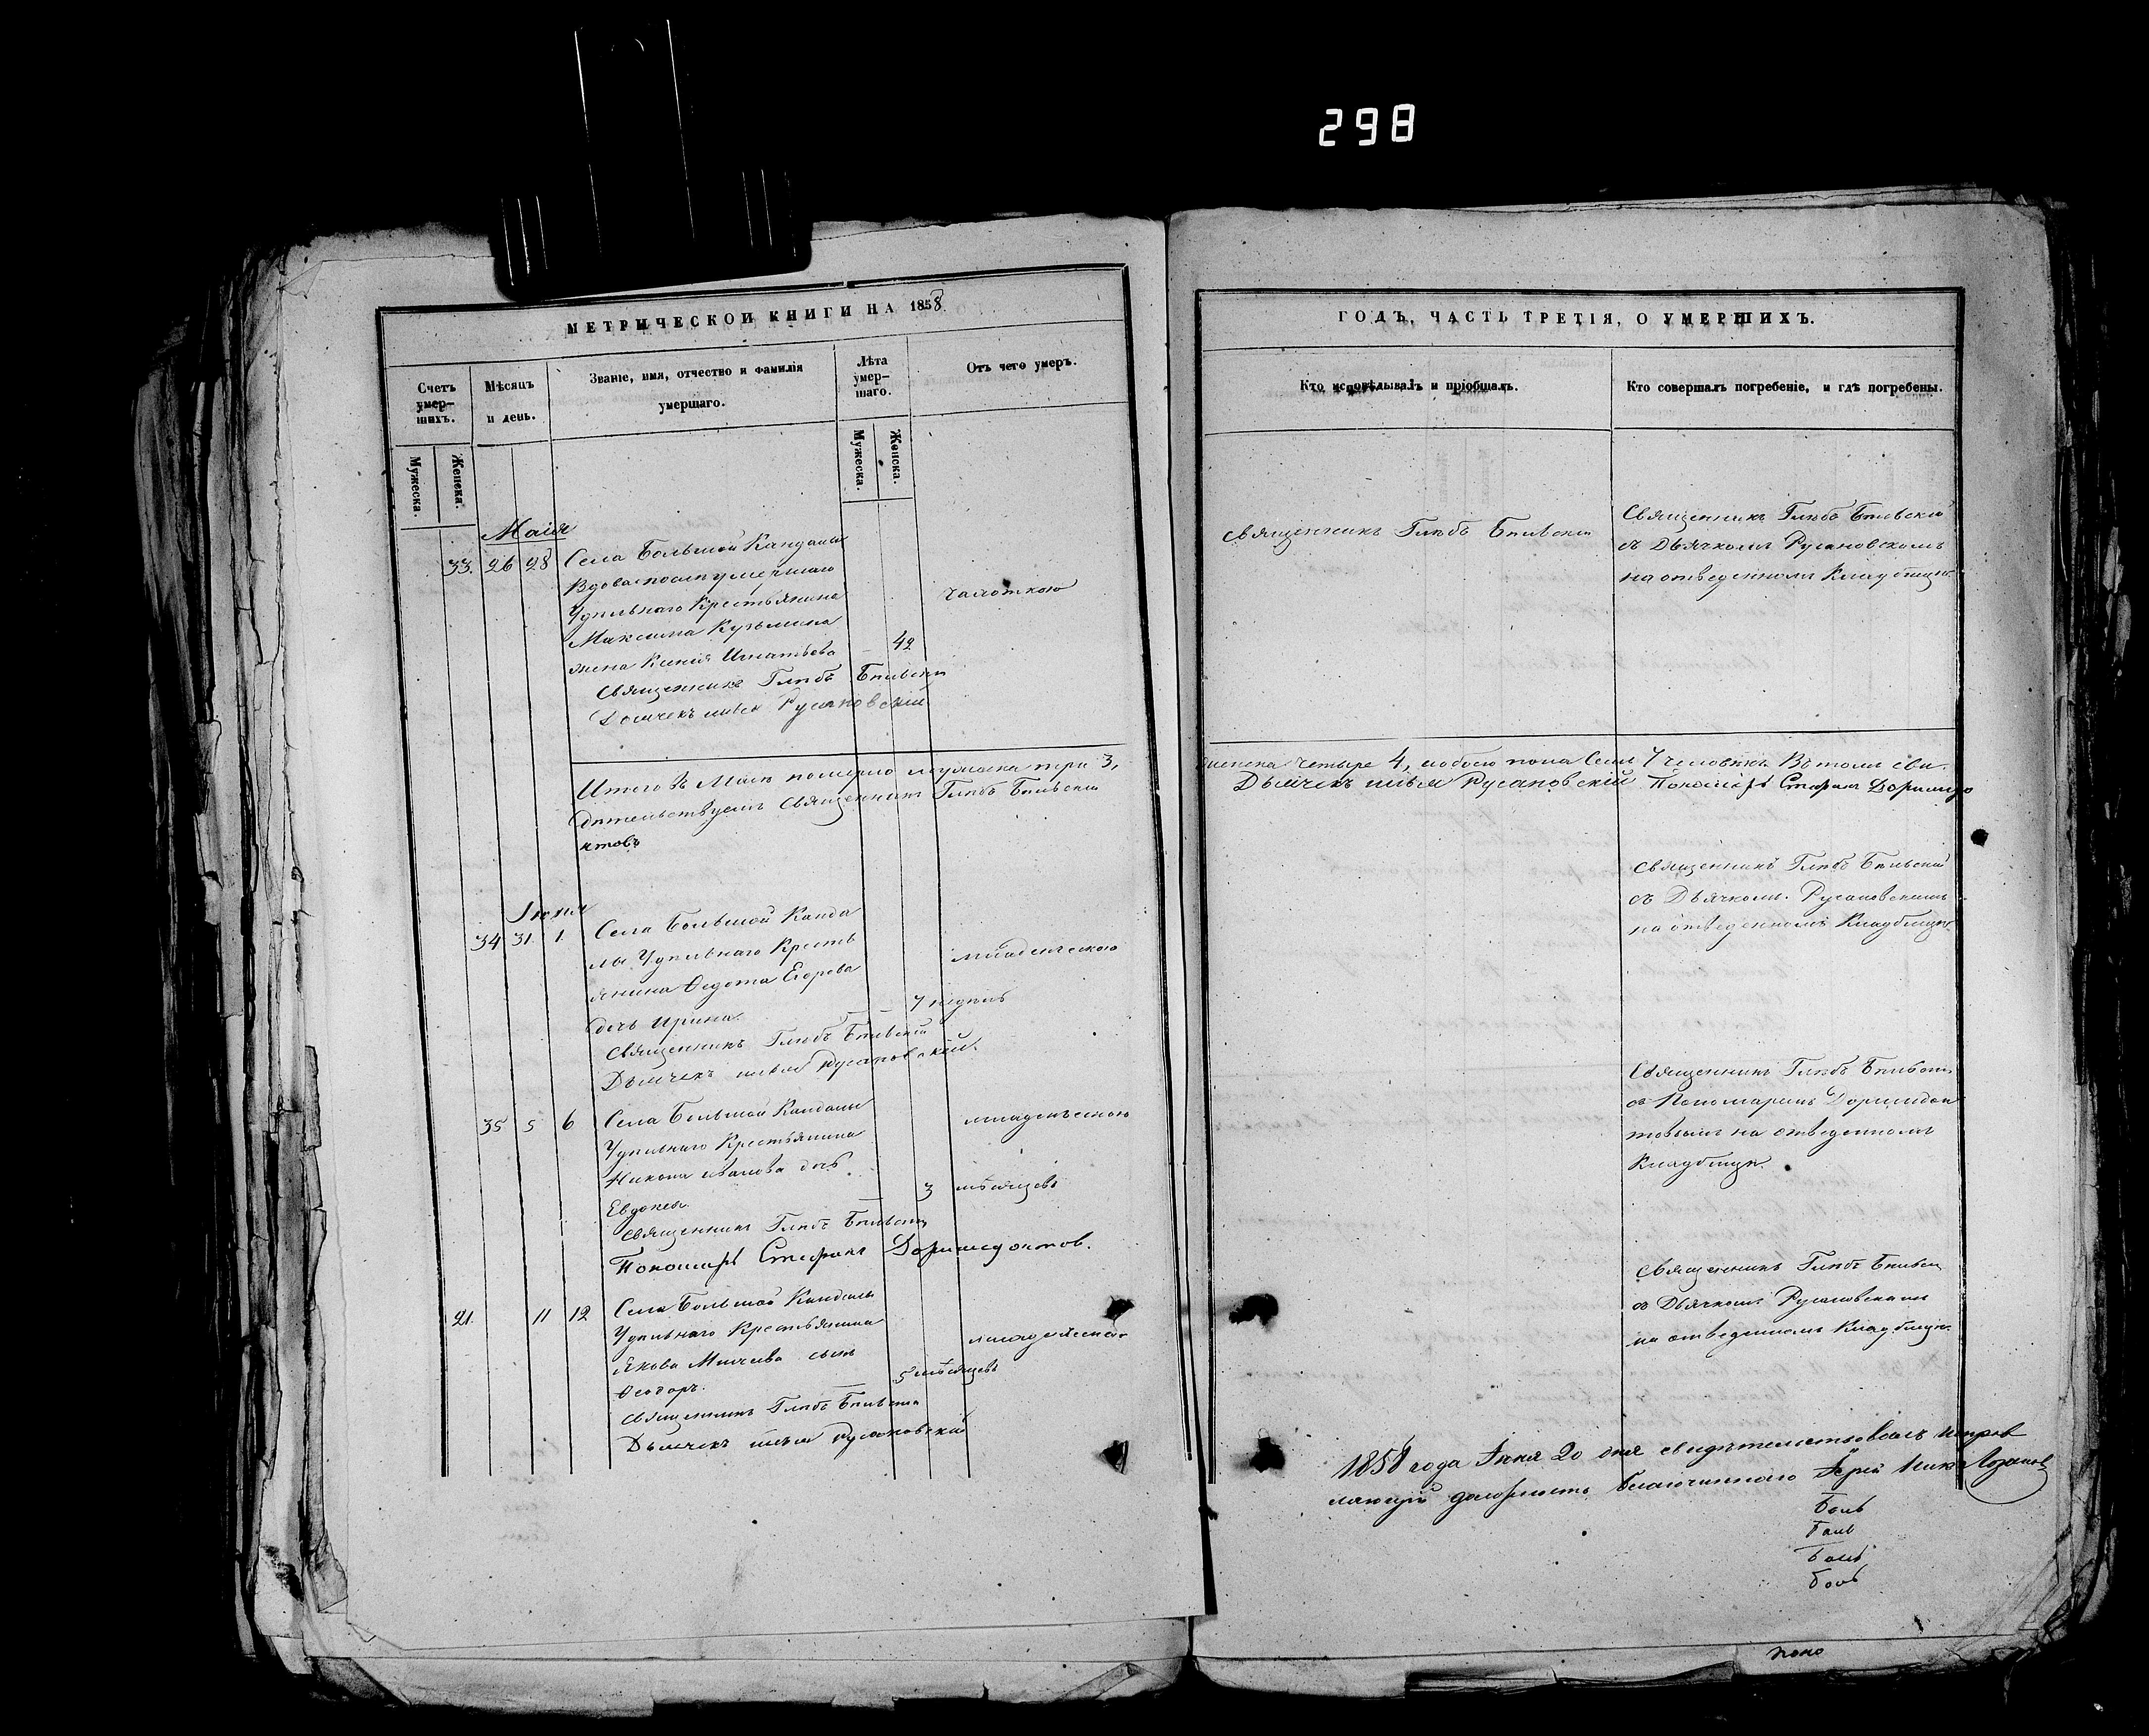 298
МЕТРИЧЕСКОЙ КНИГИ НА 1858
Счетъ умер-шихъ.
Мѣсяцъ и день.
Званіе, имя, отчество и фамилія умершаго.
Лѣта умер-шаго.
Отъ чего умеръ.
Мужеска.
Женска.
Мужеска.
Женска.
Маія
33. 26 28 Села Большой Кандалы
Вдова послѣ умершаго
Удѣльнаго Крестьянина
чахоткою
Максима Кузьмина
жена Ксенія Игнатьева 42
Священникъ Глѣбъ Бѣльскій
Дьячекъ Русановскій
Итого въ Маѣ померло мужеска три 3,
дѣтельствуемъ Священникъ Глѣбъ Бѣльскій
нтовъ
Іюня
34 31. 1. Села Большой Канда
лы Удѣльнаго Кресть
младенческою
янина Ѳедота Егорова
дочь Ирина. 7 недѣль
Священникъ Глѣбъ Бѣльскій
Дьячекъ Русановскій.
35 5 6 Села Большой Кандалы
младенческою
Удѣльнаго Крестьянина
Никона Иванова дочь
Евдокія 3 мѣсяцевъ
Священникъ Глѣбъ Бѣльскій
Пономарь Стефанъ Доримедонтов.
21. 11 12 Села Большой Кандалы
Удѣльнаго Крестьянина
младенческою
Якова сынъ
Ѳеодоръ. 5 мѣсяцевъ
Священникъ Глѣбъ Бѣльскій
Дьячекъ Русановскій
ГОДЪ, ЧАСТЬ ТРЕТІЯ, О УМЕРШИХЪ.
Кто исповѣдывалъ и пріобщалъ.
Кто совершалъ погребеніе, и гдѣ погребены.
Священникъ Глѣбъ Бѣльскій
Священникъ Глѣбъ Бѣльскій
съ Дьячкомъ Русановскомъ
на отведенномъ Кладбищѣ.
женска четыре 4, обоего пола Семь 7 человѣкъ Въ томъ сви
Дьячекъ Русановскій Пономарь Стефанъ Доримедо
Священникъ Глѣбъ Бѣльскій
съ Дьячкомъ Русановскимъ
на отведенномъ Кладбищѣ.
Священникъ Глѣбъ Бѣльскій
съ Пономаремъ Доримедон
товымъ на отведенномъ
Кладбищѣ.
Священникъ Глѣбъ Бѣльскій
съ Дьячкомъ Русановскимъ
на отведенномъ Кладбищѣ.
1858 года Іюня 20 дня свидѣтельствовалъ исправ
ляющій должность благочиннаго Іерей
Боль
Боль
Боль
Боль
поно